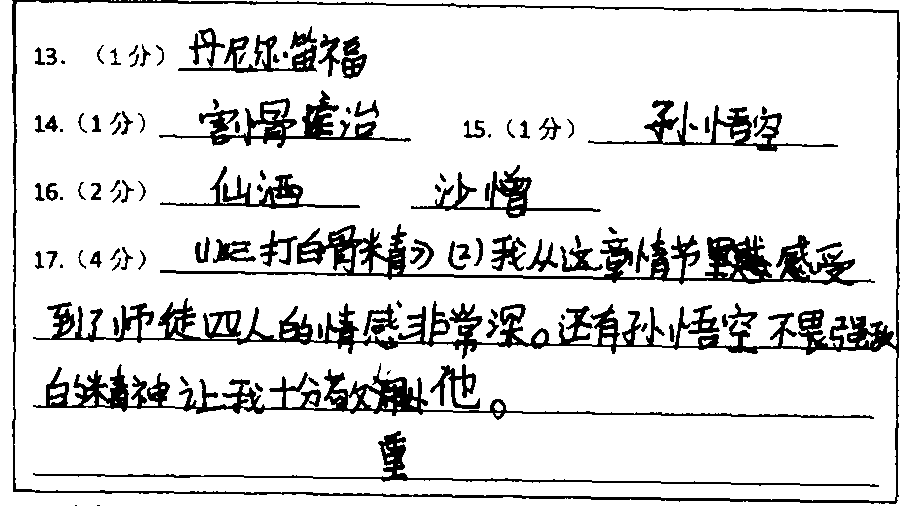 13. （1分）丹尼尔笛福
14.（1分）割骨疗治 15.（1分）孙悟空
16.（2分）仙酒 沙憎
17.（4分）《三打白骨精》(2)我从这章情节里感受
到了师徒四人的情感非常深。还有孙悟空不畏强敌
的精神让我十分敬他。
重